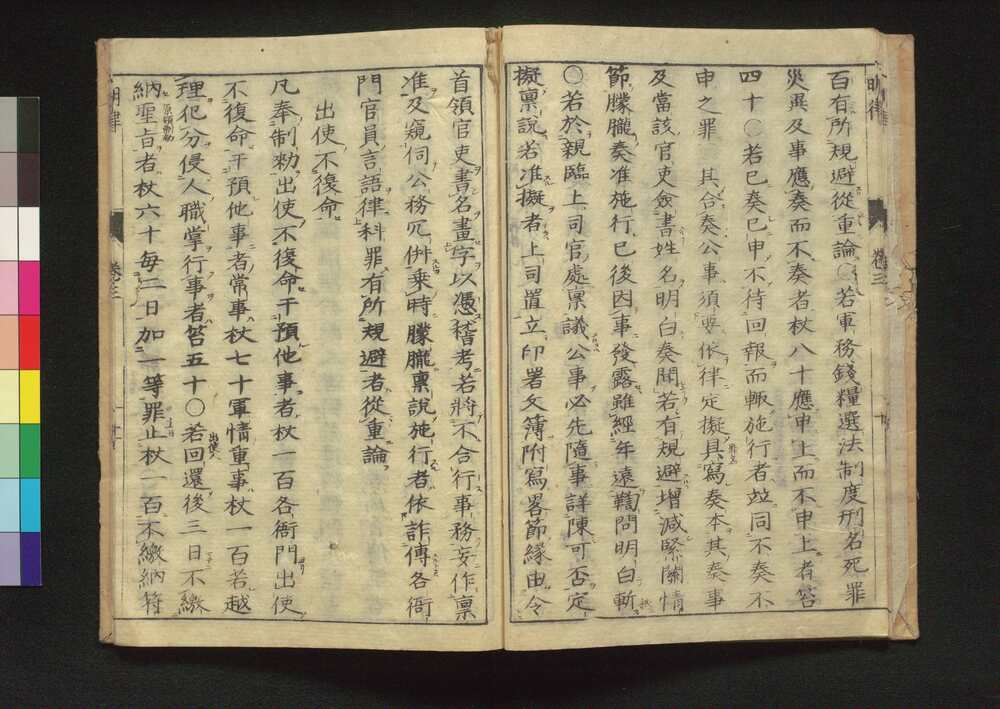 百有所規避從重論○若軍務錢糧選法制度刑名死罪
災異及事應奏而不奏者杖八十應申上而不申上者笞
四十○若已奏已申不待回報而輙施行者竝同不奏不
申之罪 其合奏公事須要依律定擬具寫奏本其奏事
及當該官吏僉書姓名明白奏聞若有規避増減緊關情
節朦朧奏准施行已後因事發露雖經年遠鞫問明白斬
○若於親臨上司官處稟議公事必先隨事詳陳可否定
擬稟說若准擬者上司置立印署文簿附寫畧節緣由令
首領官吏書名畫字以憑稽考若將不合行事務妄作稟
准及窺伺公務冗併乗時朦朧稟說施行者依詐傳各衙
門官員言語律科罪有所規避者從重論
出使不復命
凡奉制勅出使不復命干預他事者杖一百各衙門出使
不復命干預他事者常事杖七十軍情重事杖一百若越
理犯分侵人職掌行事者笞五十○若回還後三日不繳
納聖旨者杖六十毎二日加一等罪止杖一百不繳納符
明律
卷三
明律
卷三